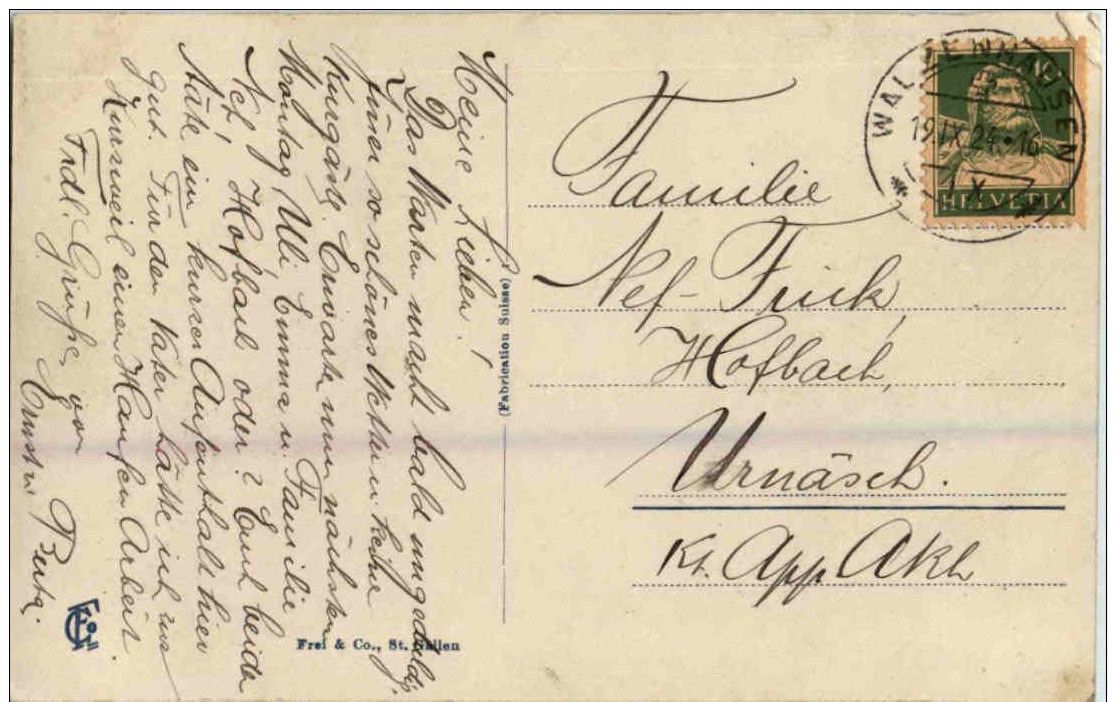 Meine Lieben!
Das Warten macht bald ungeduldig,
immer so schönes Wetter u. keine
Kurgäste. Erwarte nun nächsten
Montag Uli Emma u. Familie
Nef, Hofbach oder? Euch beide
häte ein kurzer Aufenthalt hier
gut. Für den Vater hätte ich zur
Kurzweil einen Haufen Arbeit.
Frdl. Grüße von
Ernst u. Berta.
(Fabrication Suisse)
Frei & Co., St. Gallen
WALZENHAUSEN
19.IX.24.16
X
HELVETIA
Familie
Nef-Frick,
Hofbach,
Urnäsch.
Kt. App. A.Rh.